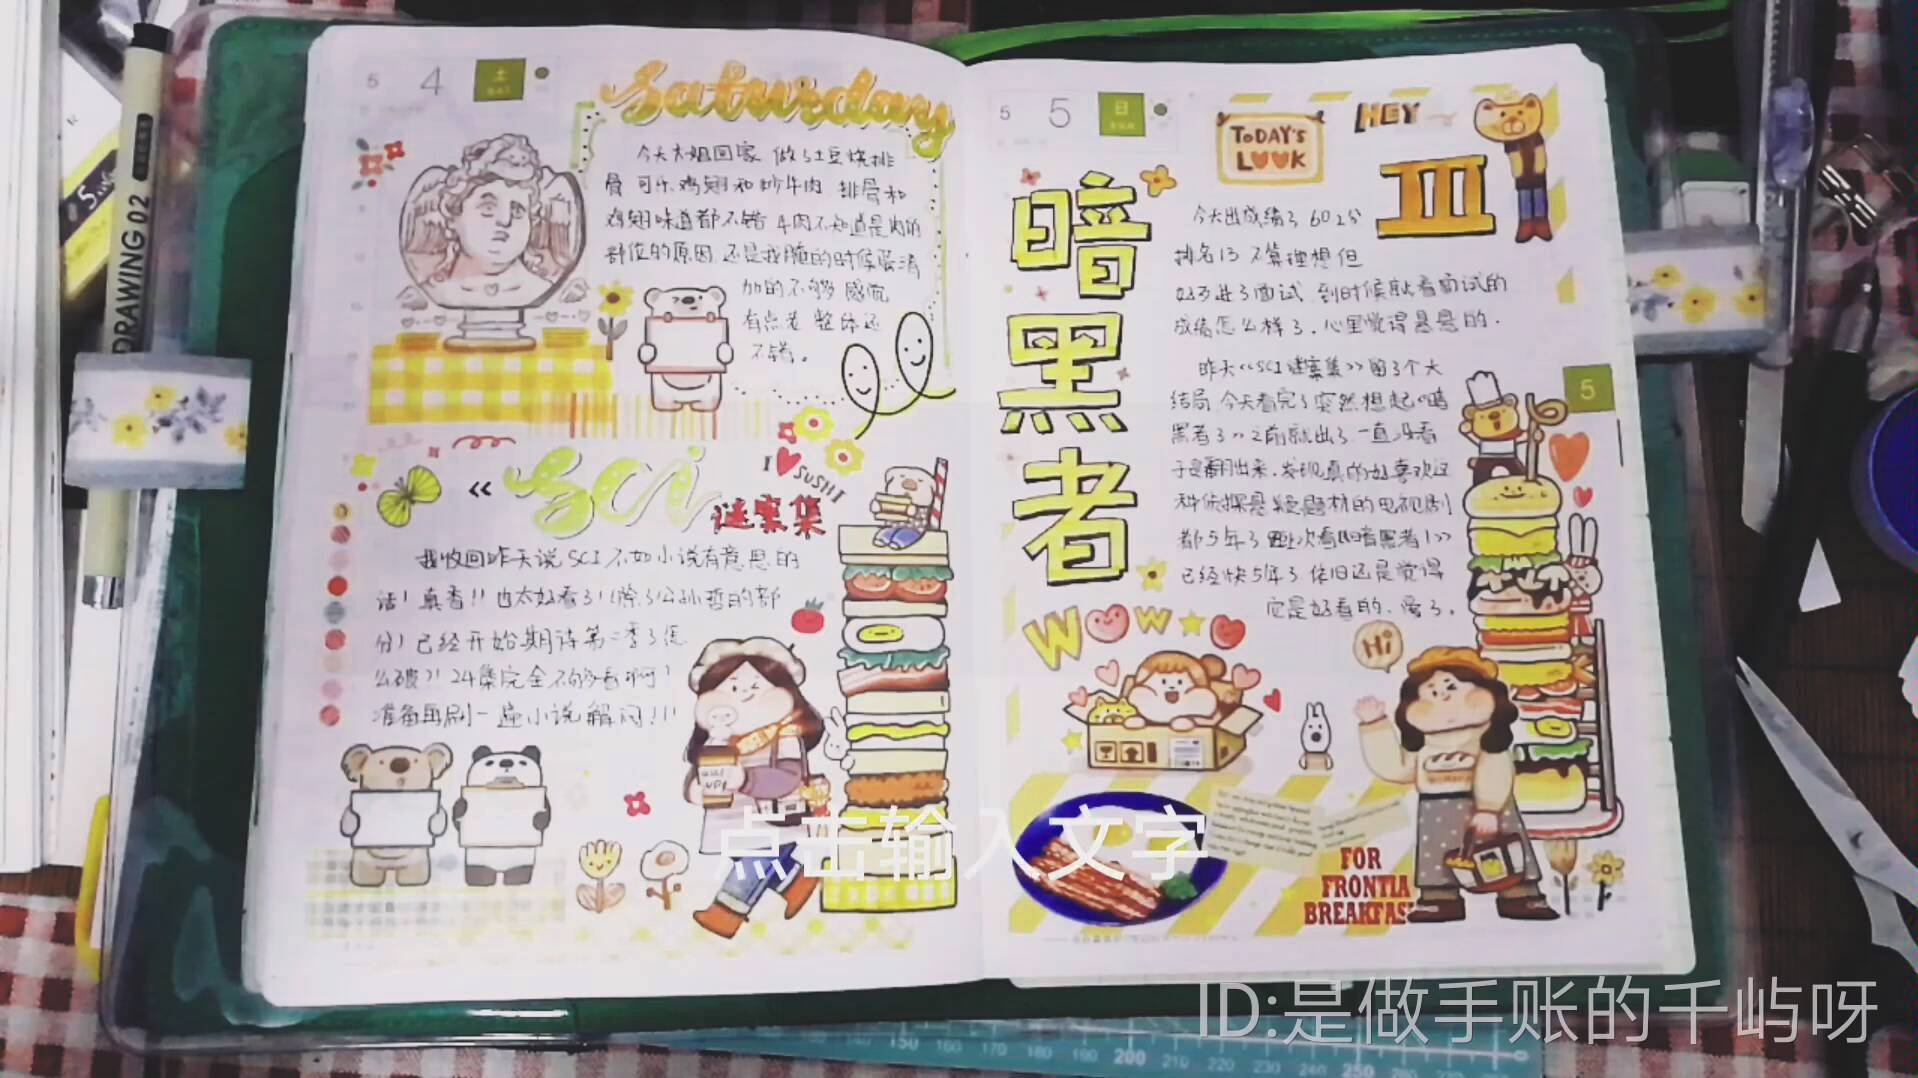 5 4 土
saturday
今天大姐回家 做了土豆烧排
骨 可乐鸡翅和炒牛肉 排骨和
鸡翅味道都不错 牛肉不知道是肉的
部位的原因 还是我腌的时候蛋清
加的不够 感觉
有点老 整体还
不错。
I SUSHI
《 sci 谜案集
我收回昨天说SCI不如小说有意思的
话！真香！！也太好看了！(除了公孙哲的部
分) 已经开始期待第二季了怎
么破？！24集完全不够看啊！
准备再刷一遍小说解闷！！！
5 5 日
TODAY'S
LOOK
HEY
暗黑者 III
今天出成绩了 602分
排名13 不算理想但
好歹进了面试 到时候就看面试的
成绩怎么样了. 心里觉得悬悬的.
昨天《SCI谜案集》留了个大
结局 今天看完了突然想起《暗
黑者3》之前就出了一直没看
于是翻出来. 发现真的好喜欢这
种侦探悬疑题材的电视剧
都5年了 距上次看《暗黑者1》
已经快5年了 依旧还是觉得
它是好看的. 爱了.
5
WOW
Hi
FOR
FRONTIA
BREAKFAS
点击输入文字
ID:是做手账的千屿呀
DRAWING 02
150 160 170 180 190 200 210 220 230 240 250